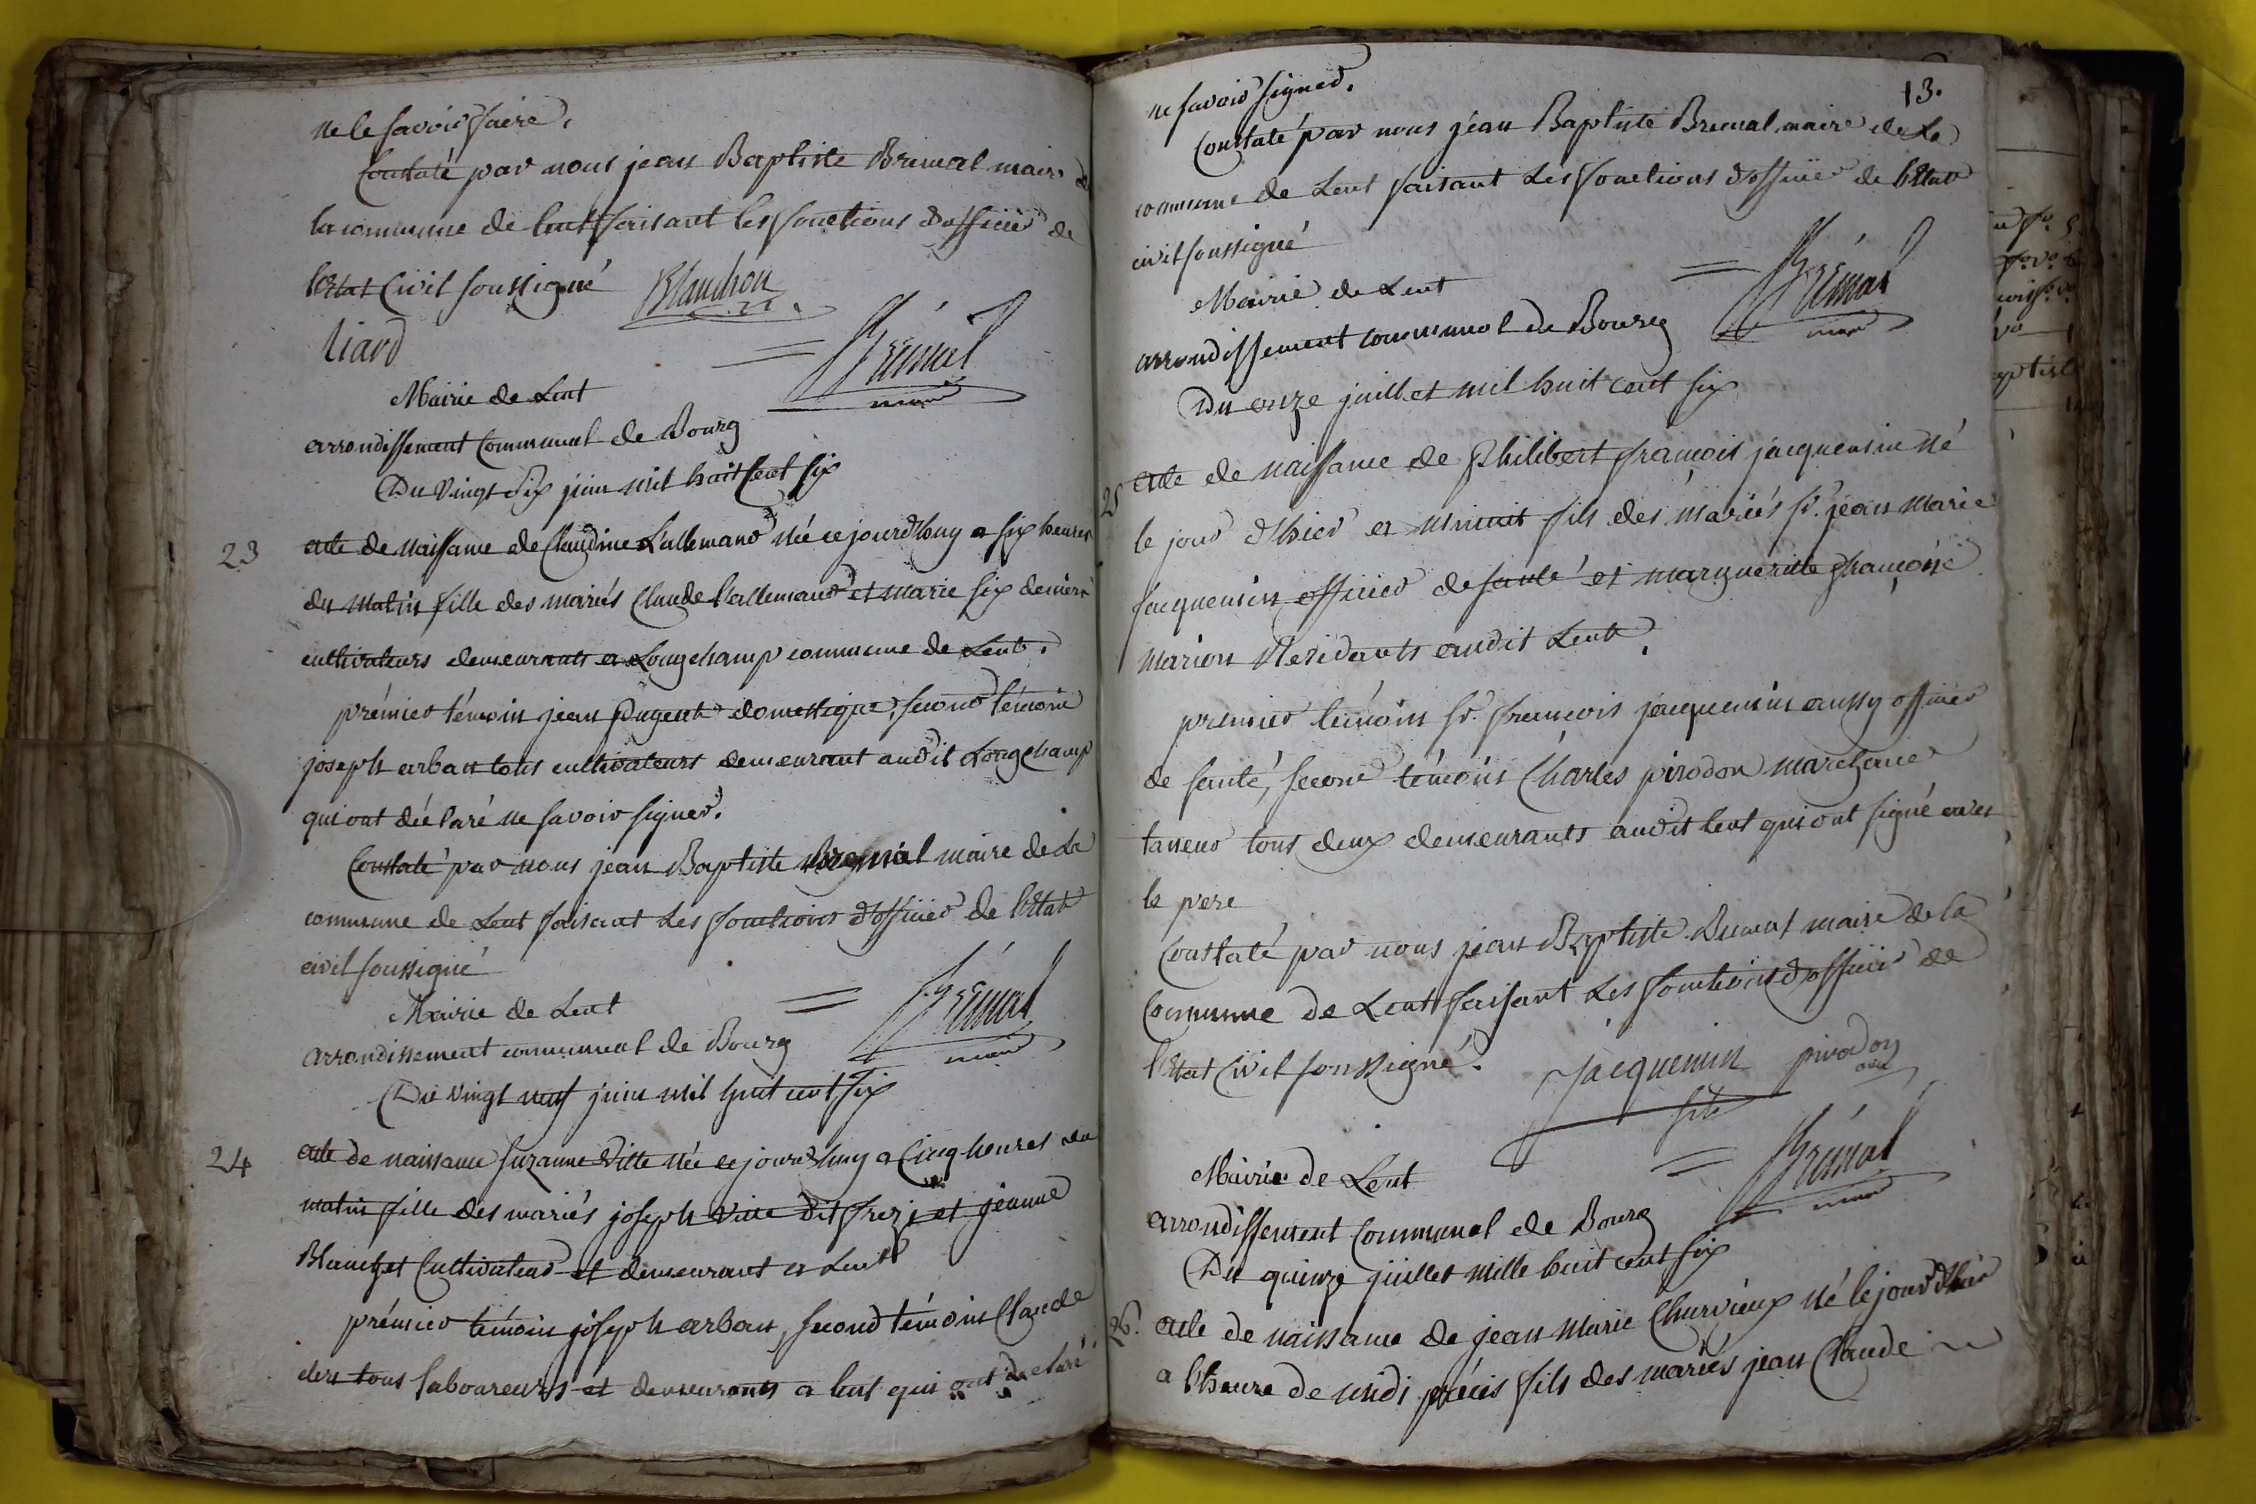 ne le savoir faire.
Constaté par nous jean Baptiste Bremal maire de
la commune de lent faisant les fonctions d'officier de
l'Etat Civil soussigné Blanchon
Liard
Brémal
maire
Mairie de Lent
arrondissement Communal de Bourg
Du vingt six juin mil huit Cent six
23 acte de naissance de Claudine Lallemand née ce jourdhuy a six heures
du matin fille des mariés Claude Lallemand et marie six deniers
cultivateurs demeurants a Longchamp commune de Lent.
prémier témoin jean pugent domestique, second témoin
joseph arban tous cultivateurs demeurant audit Longchamp
qui ont déclaré ne savoir signer.
Constaté par nous jean Baptiste Bremal maire de La
commune de Lent faisant Les fonctions d'officier de l'Etat
civil soussigné
Brémal
maire
Mairie de Lent
arrondissement communal de Bourg
Du vingt neuf juin mil huit cent six
24 acte de naissance suzanne Vitte née ce jourdhuy a Cinq heures du
matin fille des mariés joseph Vitte dit et jeanne
Blanchet Cultivateur et demeurant a Lent
prémier témoin joseph arban, second témoin Claude
tous laboureurs et demeurants a lent qui ont declaré
13.
ne savoir signer.
Constaté par nous jean Baptiste Bremal maire de La
commune de Lent faisant Les fonctions d'officier de l'Etat
civil soussigné
Brémal
maire
Mairie de Lent
arrondissement communal de Bourg
Du onze juillet mil huit cent six
25 acte de naissance de philibert françois jacquemin né
le jour d'hier a minuit fils des mariés sr. jean marie
jacquemin officier de santé et marguerite françoise
marion Residants audit Lent.
premier témoin sr. françois jacquemin aussy officier
de santé, second témoin Charles pirodon marchand
taneur tous deux demeurants audit lent qui ont signé avec
le pere
Constaté par nous jean Baptiste Bremal maire de la
Commune de Lent faisant Les fonctions d'officier de
l'Etat Civil soussigné.
jacquemin pirodon
fils
Brémal
maire
Mairie de Lent
arrondissement Communal de Bourg
Du quinze juillet mille huit cent six
26. acte de naissance de jean marie Churvieux né le jour d'hier
a l'heure de midi précis fils des mariés jean Claude